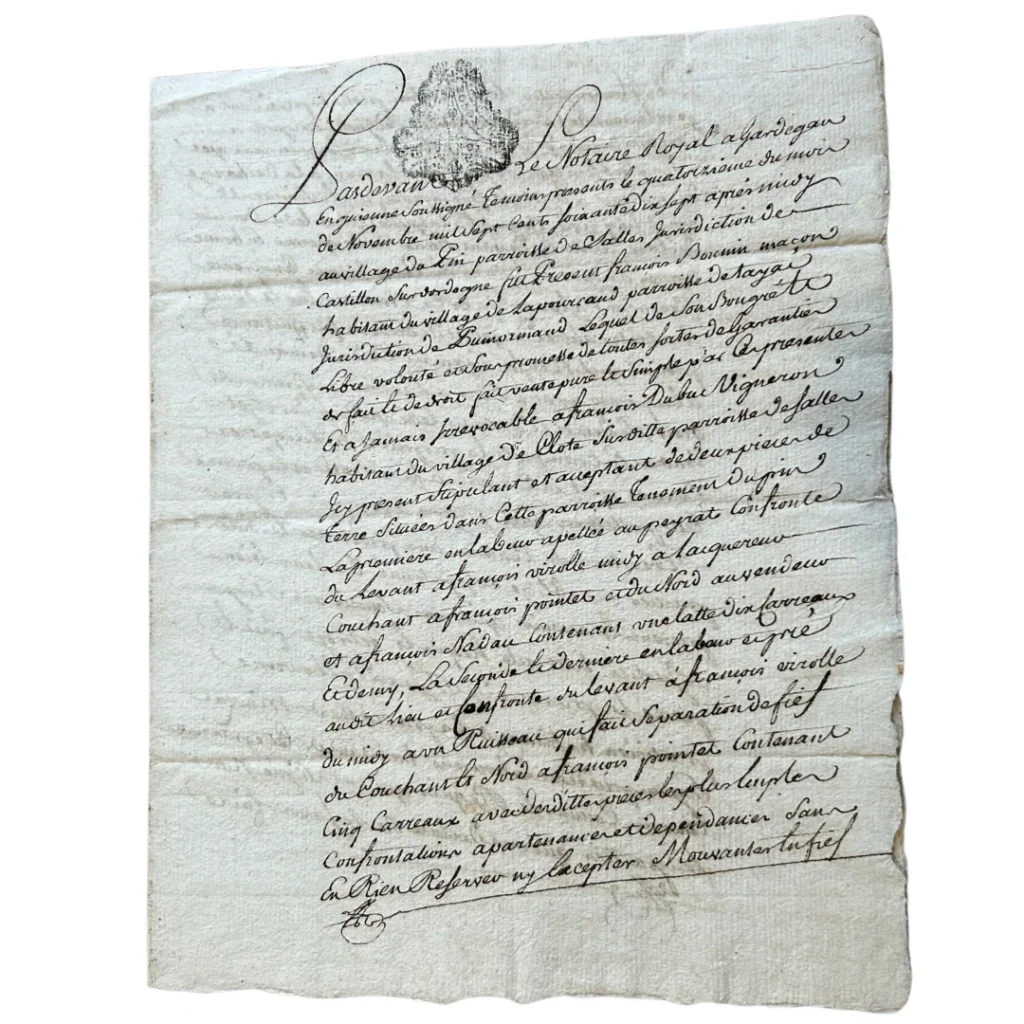 Pardevan Le Notaire Royal a Gardegan
En guienne Soussigné Temoins presents le quatorzieme du mois
de Novembre mil Sept Cents Soixante dix sept aprés midy
au village du Pin parroisse de Salles Jurisdiction de
Castillon Sur dordogne fut Present francois Bonnin maçon
habitant du village de Lapourcaud parroisse de tayac
Jurisdiction de Puinormand Lequel de Son Bongré et
Libre volonté et Sous promesse de toutes sortes de Garantier
de fait et de droit fait vente pure et Simple par Ces presentes
Et a Jamais Irrevocable a francois Dubuc Vigneron
habitant du village de Clote Surditte parroisse de Salles
Icy present Stipulant et acceptant de deux pieces de
terre Situées dans Cette parroisse Tenement du pin
La premiere en labeur apellée au peyrat Confronte
du Levant a françois virolle midy a lacquereur
Couchant a françois pointet et du Nord au vendeur
et a françois Nadau Contenant vne latte dix Carreaux
Et demy, La Seconde et derniere en labeur et prié
audit lieu et Confronte du levant á françois virolle
du midy a vn Ruisseau qui fait Separation de fief
du Couchant et Nord a françois pointet Contenant
Cinq Carreaux avec desditte pieces les plus amples
Confrontations apartenances et dependances Sans
En Rien Reserver ny Excepter Mouvantes en fief